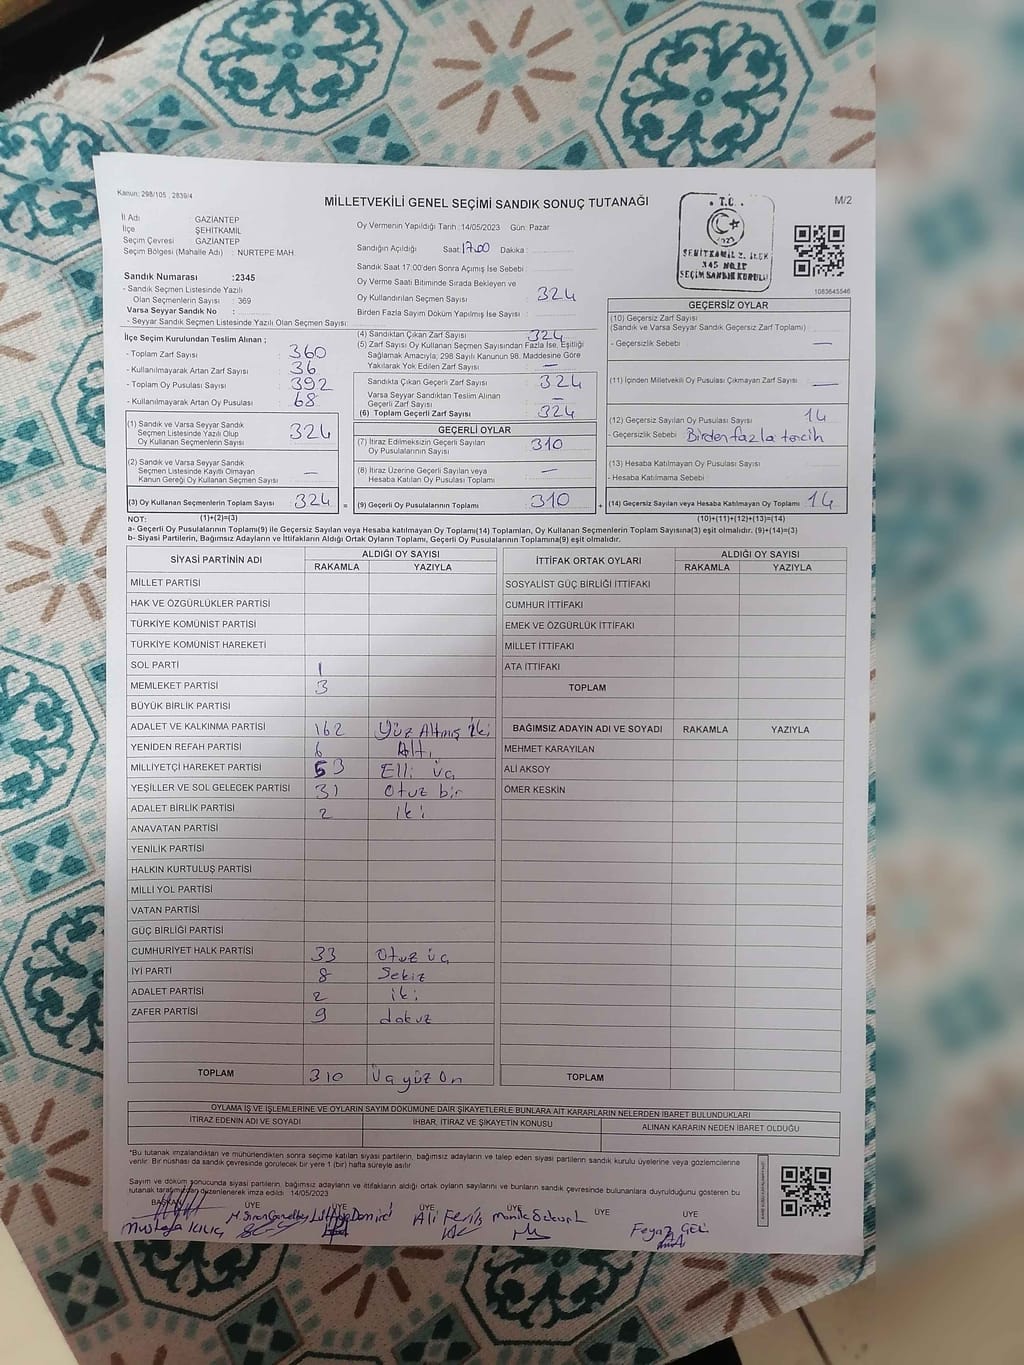 Kanun: 298/105 , 2839/4
MİLLETVEKİLİ GENEL SEÇİMİ SANDIK SONUÇ TUTANAĞI
M/2
İl Adı : GAZİANTEP
İlçe : ŞEHİTKAMİL
Seçim Çevresi : GAZİANTEP
Seçim Bölgesi (Mahalle Adı) : NURTEPE MAH.
Sandık Numarası :2345
- Sandık Seçmen Listesinde Yazılı
Olan Seçmenlerin Sayısı : 369
Varsa Seyyar Sandık No :
- Seyyar Sandık Seçmen Listesinde Yazılı Olan Seçmen Sayısı:
Oy Vermenin Yapıldığı Tarih :14/05/2023 Gün: Pazar
Sandığın Açıldığı Saat:17.00 Dakika :
Sandık Saat 17:00'den Sonra Açımış İse Sebebi :
Oy Verme Saati Bitiminde Sırada Bekleyen ve
Oy Kullandırılan Seçmen Sayısı : 324
Birden Fazla Sayım Döküm Yapılmış İse Sayısı :
T.C.
1923
ŞEHİTKAMİL 2. İLÇE
345 NOLU
SEÇİM SANDIK KURULU
1083645546
İlçe Seçim Kurulundan Teslim Alınan ;
- Toplam Zarf Sayısı : 360
- Kullanılmayarak Artan Zarf Sayısı : 36
- Toplam Oy Pusulası Sayısı : 392
- Kullanılmayarak Artan Oy Pusulası : 68
(1) Sandık ve Varsa Seyyar Sandık
Seçmen Listesinde Yazılı Olup
Oy Kullanan Seçmenlerin Sayısı : 324
(2) Sandık ve Varsa Seyyar Sandık
Seçmen Listesinde Kayıtlı Olmayan
Kanun Gereği Oy Kullanan Seçmen Sayısı : —
(3) Oy Kullanan Seçmenlerin Toplam Sayısı : 324
(4) Sandıktan Çıkan Zarf Sayısı : 324
(5) Zarf Sayısı Oy Kullanan Seçmen Sayısından Fazla İse, Eşitliği
Sağlamak Amacıyla; 298 Sayılı Kanunun 98. Maddesine Göre
Yakılarak Yok Edilen Zarf Sayısı : —
Sandıkta Çıkan Geçerli Zarf Sayısı : 324
Varsa Seyyar Sandıktan Teslim Alınan
Geçerli Zarf Sayısı : —
(6) Toplam Geçerli Zarf Sayısı : 324
GEÇERLİ OYLAR
(7) İtiraz Edilmeksizin Geçerli Sayılan
Oy Pusulalarının Sayısı : 310
(8) İtiraz Üzerine Geçerli Sayılan veya
Hesaba Katılan Oy Pusulası Toplamı : —
= (9) Geçerli Oy Pusulalarının Toplamı : 310
GEÇERSİZ OYLAR
(10) Geçersiz Zarf Sayısı
(Sandık ve Varsa Seyyar Sandık Geçersiz Zarf Toplamı) :
- Geçersizlik Sebebi : —
(11) İçinden Milletvekili Oy Pusulası Çıkmayan Zarf Sayısı : —
(12) Geçersiz Sayılan Oy Pusulası Sayısı : 14
- Geçersizlik Sebebi : Birden fazla tercih
(13) Hesaba Katılmayan Oy Pusulası Sayısı :
- Hesaba Katılmama Sebebi :
+ (14) Geçersiz Sayılan veya Hesaba Katılmayan Oy Toplamı : 14
NOT: (1)+(2)=(3)
(10)+(11)+(12)+(13)=(14)
a- Geçerli Oy Pusulalarının Toplamı(9) ile Geçersiz Sayılan veya Hesaba katılmayan Oy Toplamı(14) Toplamları, Oy Kullanan Seçmenlerin Toplam Sayısına(3) eşit olmalıdır. (9)+(14)=(3)
b- Siyasi Partilerin, Bağımsız Adayların ve İttifakların Aldığı Ortak Oyların Toplamı, Geçerli Oy Pusulalarının Toplamına(9) eşit olmalıdır.
SİYASİ PARTİNİN ADI ALDIĞI OY SAYISI
RAKAMLA YAZIYLA
MİLLET PARTİSİ
HAK VE ÖZGÜRLÜKLER PARTİSİ
TÜRKİYE KOMÜNİST PARTİSİ
TÜRKİYE KOMÜNİST HAREKETİ
SOL PARTİ 1
MEMLEKET PARTİSİ 3
BÜYÜK BİRLİK PARTİSİ
ADALET VE KALKINMA PARTİSİ 162 Yüz Altmış iki
YENİDEN REFAH PARTİSİ 6 Altı
MİLLİYETÇİ HAREKET PARTİSİ 53 Elli üç
YEŞİLLER VE SOL GELECEK PARTİSİ 31 Otuz bir
ADALET BİRLİK PARTİSİ 2 iki
ANAVATAN PARTİSİ
YENİLİK PARTİSİ
HALKIN KURTULUŞ PARTİSİ
MİLLİ YOL PARTİSİ
VATAN PARTİSİ
GÜÇ BİRLİĞİ PARTİSİ
CUMHURİYET HALK PARTİSİ 33 Otuz üç
İYİ PARTİ 8 Sekiz
ADALET PARTİSİ 2 iki
ZAFER PARTİSİ 9 dokuz
TOPLAM 310 Üç yüz On
İTTİFAK ORTAK OYLARI ALDIĞI OY SAYISI
RAKAMLA YAZIYLA
SOSYALİST GÜÇ BİRLİĞİ İTTİFAKI
CUMHUR İTTİFAKI
EMEK VE ÖZGÜRLÜK İTTİFAKI
MİLLET İTTİFAKI
ATA İTTİFAKI
TOPLAM
BAĞIMSIZ ADAYIN ADI VE SOYADI RAKAMLA YAZIYLA
MEHMET KARAYILAN
ALİ AKSOY
ÖMER KESKİN
TOPLAM
OYLAMA İŞ VE İŞLEMLERİNE VE OYLARIN SAYIM DÖKÜMÜNE DAİR ŞİKAYETLERLE BUNLARA AİT KARARLARIN NELERDEN İBARET BULUNDUKLARI
İTİRAZ EDENİN ADI VE SOYADI İHBAR, İTİRAZ VE ŞİKAYETİN KONUSU ALINAN KARARIN NEDEN İBARET OLDUĞU
*Bu tutanak imzalandıktan ve mühürlendikten sonra seçime katılan siyasi partilerin, bağımsız adayların ve talep eden siyasi partilerin sandık kurulu üyelerine veya gözlemcilerine
verilir. Bir nüshası da sandık çevresinde görülecek bir yere 1 (bir) hafta süreyle asılır
Sayım ve döküm sonucunda siyasi partilerin, bağımsız adayların ve ittifakların aldığı ortak oyların sayılarını ve bunların sandık çevresinde bulunanlara duyrulduğunu gösteren bu
tutanak tarafımızdan düzenlenerek imza edildi. 14/05/2023
BAŞKAN ÜYE ÜYE ÜYE ÜYE ÜYE ÜYE
Mustafa KILIÇ
Ali
Feyaz GEL